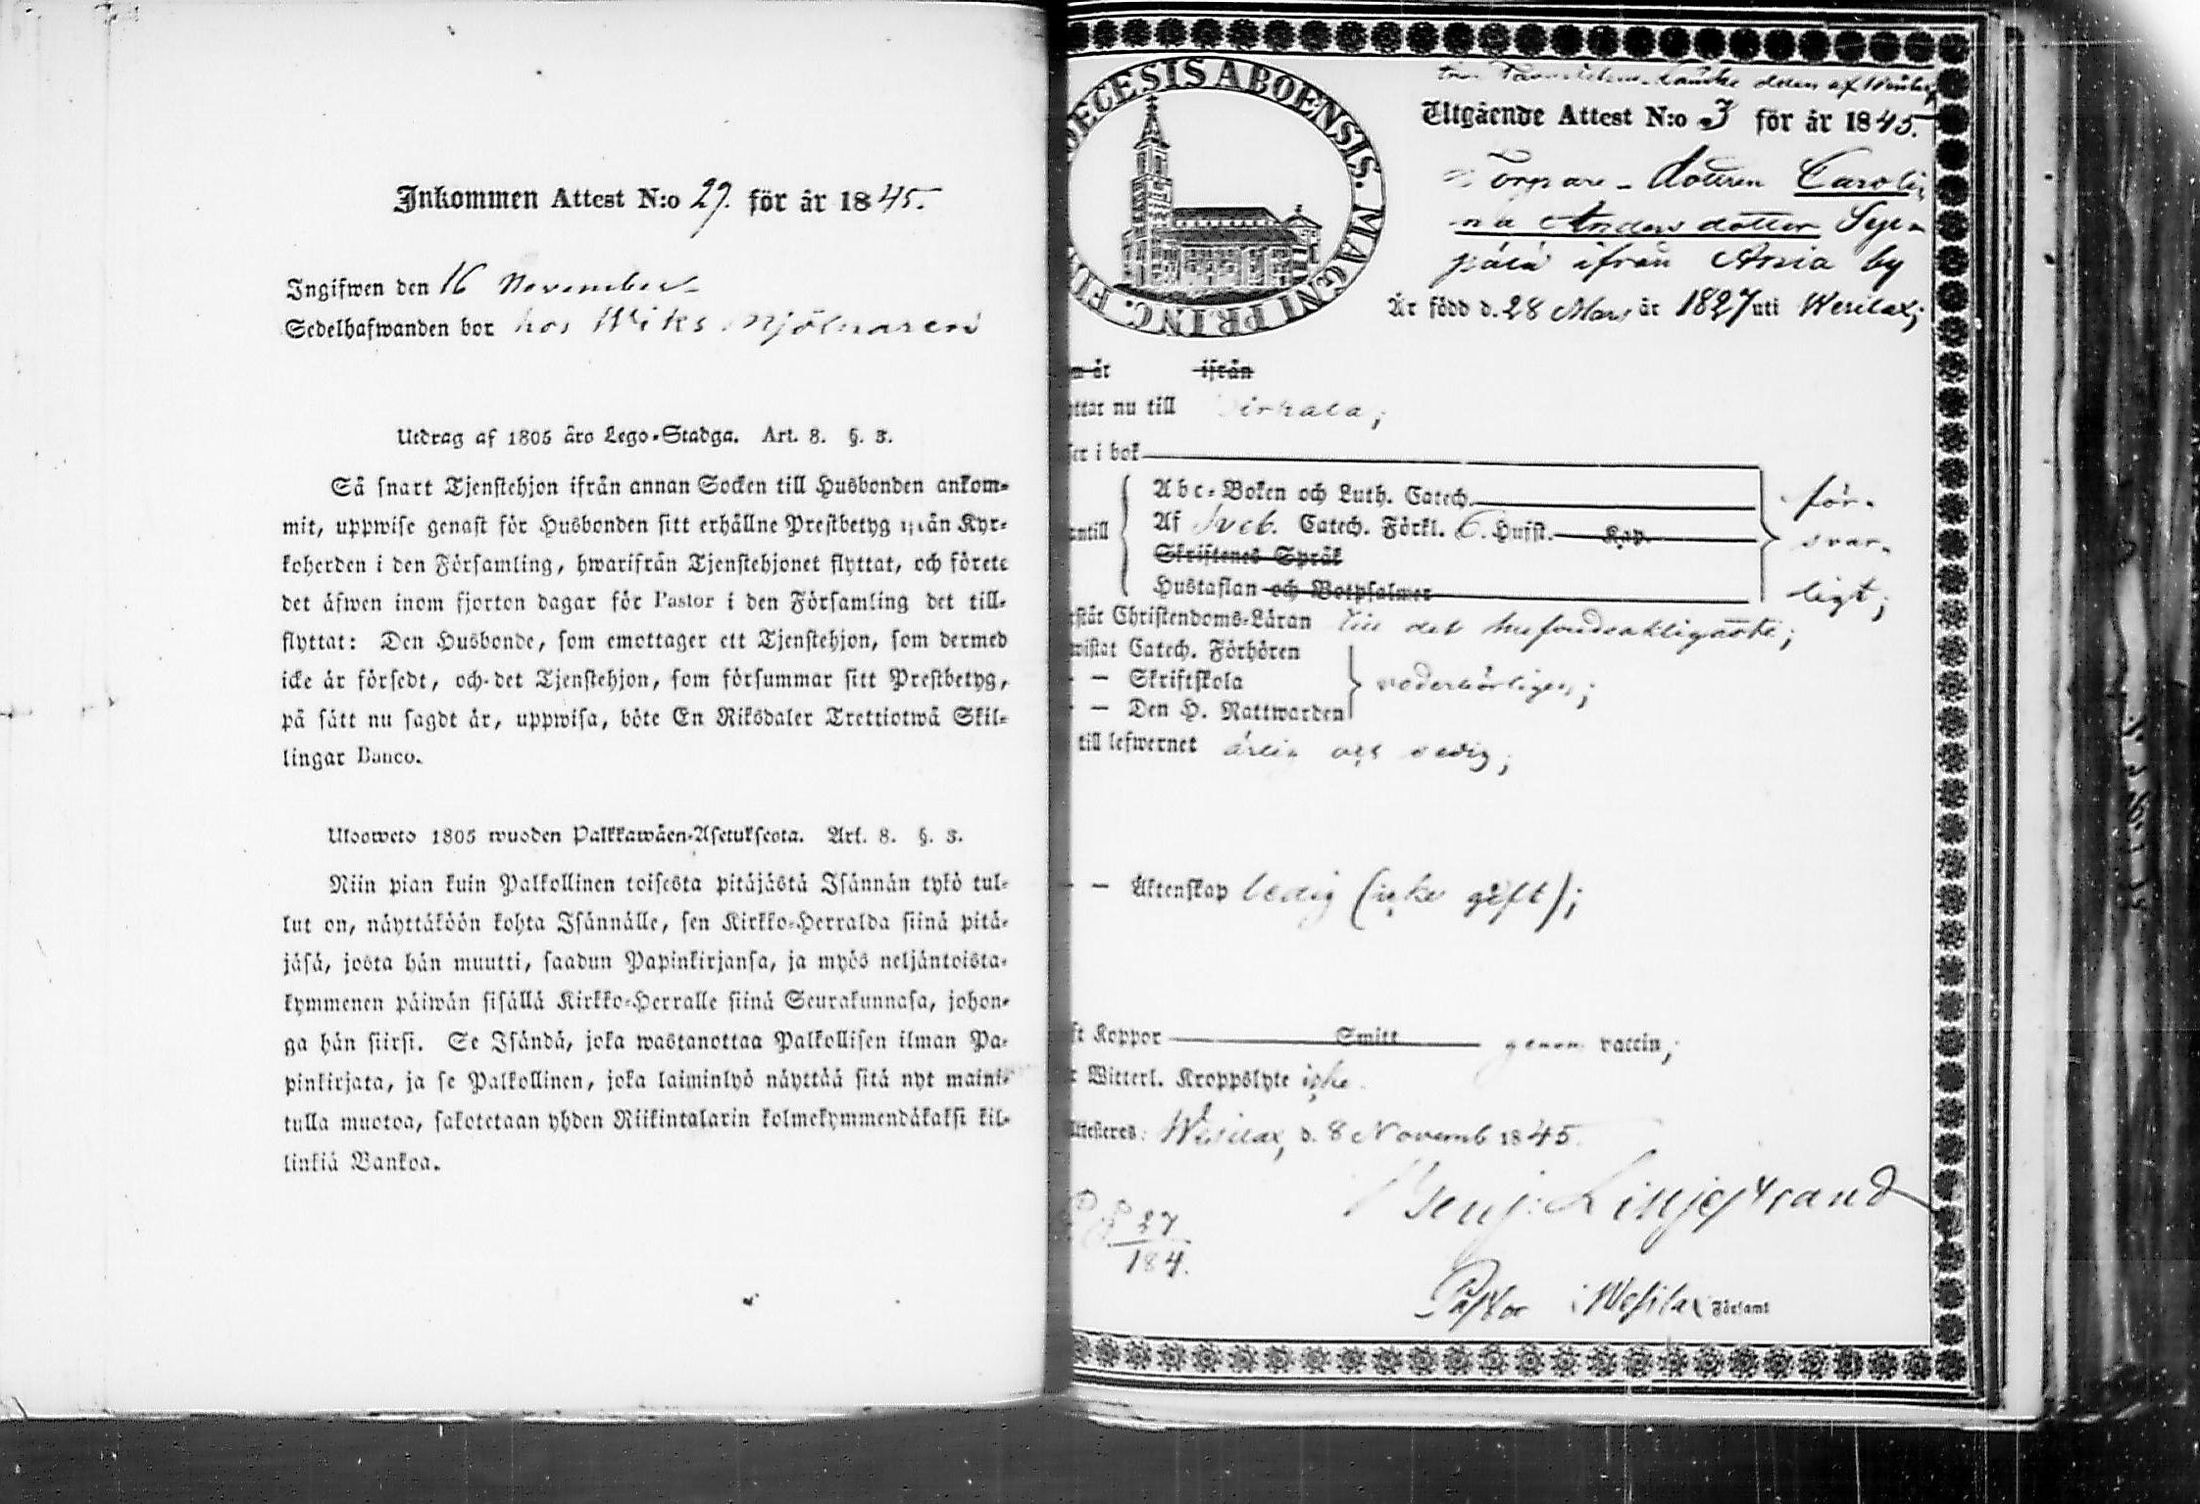 Inkommen Attest N:o 29. för år 1845.
Ingifwen den 16 November
Sedelhafwanden bor hos Wiks Mjölnaren
Utdrag af 1805 åro Lego-Stadga. Art. 8. §. 3.
Så snart Tjenstehjon ifrån annan Socken till Husbonden ankom-
mit, uppwise genast för Husbonden sitt erhållne Prestbetyg ifrån Kyr-
koherden i den Församling, hwarifrån Tjenstehjonet flyttat, och förete
det äfwen inom fjorton dagar för Pastor i den Församling det till-
flyttat: Den Husbonde, som emottager ett Tjenstehjon, som dermed
icke är försedt, och det Tjenstehjon, som försummar sitt Prestbetyg,
på sätt nu sagdt är, uppwisa, böte En Riksdaler Trettiotwå Skil-
lingar Banco.
Ulosweto 1805 wuoden Palkkawäen-Asetuksesta. Art. 8. §. 3.
Niin pian kuin Palkollinen toisesta pitäjästä Isännän tykö tul-
lut on, näyttäköön kohta Isännälle, sen Kirkko-Herralda siinä pitä-
jäsä, josta hän muutti, saadun Papinkirjansa, ja myös neljäntoista-
kymmenen päiwän sisällä Kirkko-Herralle siinä Seurakunnasa, johon-
ga hän siirsi. Se Isändä, joka wastanottaa Palkollisen ilman Pa-
pinkirjata, ja se Palkollinen, joka laiminlyö näyttää sitä nyt maini-
tulla muotoa, sakotetaan yhden Riikintalarin kolmekymmendäkaksi kil-
linkiä Bankoa.
DIOECESIS ABOENSIS. MAGNI PRINC. FIN
Utgående Attest N:o 3 för år 1845.
Torpare-dotren Caroli-
na Andersdotter Sep-
pälä ifrån Ania by
Är född d. 28 Mars år 1827 uti Wesilax;
m år ifrån
ttar nu till Birkala;
ser i bok
Abc-Boken och Luth. Catech. för-
antill Af Sveb. Catech. Förkl. 6. Hufst. Kap. svar-
Skriftenes Språk
Hustaflan och Botpsalmer ligt;
rstår Christendoms-Läran till det hufvudsakligaste;
wistat Catech. Förhören
- — Skriftskola vederbörligen;
- — Den H. Nattwarden
till lefwernet ärlig och sedig;
- — Äktenskap ledig (icke gift);
ft Koppor Smitt genom vaccin;
r Witterl. Kroppslyte icke.
Attesteres: Wesilax, d. 8 Novemb 1845.
Benj. Liljestrand
27
184.
Pastor i Wesilax Församl